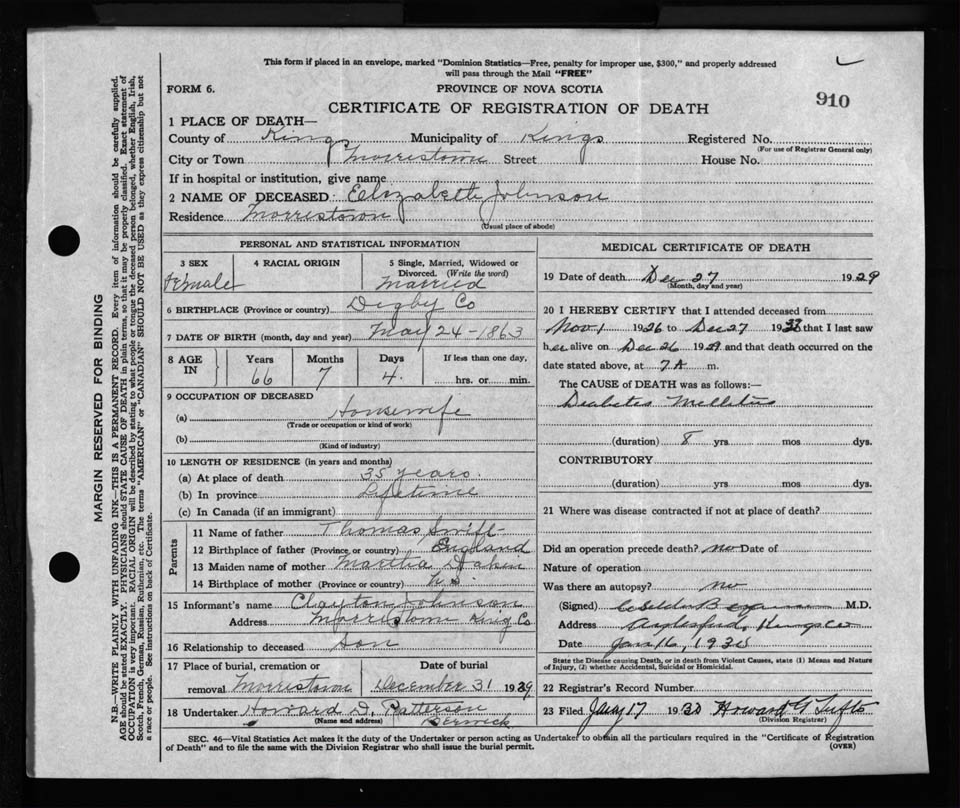 This form if placed in an envelope, marked "Dominion Statistics—Free, penalty for improper use, $300," and properly addressed
will pass through the Mail "FREE"
FORM 6. PROVINCE OF NOVA SCOTIA
910
CERTIFICATE OF REGISTRATION OF DEATH
1 PLACE OF DEATH—
County of Kings Municipality of Kings Registered No.
(For use of Registrar General only)
City or Town Morristown Street House No.
If in hospital or institution, give name
2 NAME OF DECEASED Elizabeth Johnson
Residence Morristown
(Usual place of abode)
PERSONAL AND STATISTICAL INFORMATION
3 SEX 4 RACIAL ORIGIN 5 Single, Married, Widowed or
Divorced. (Write the word)
Female Married
6 BIRTHPLACE (Province or country) Digby Co
7 DATE OF BIRTH (month, day and year) May 24-1863
8 AGE IN Years Months Days If less than one day,
66 7 4. hrs. or min.
9 OCCUPATION OF DECEASED
(a) Housewife
(Trade or occupation or kind of work)
(b)
(Kind of industry)
10 LENGTH OF RESIDENCE (in years and months)
(a) At place of death 35 years.
(b) In province Lifetime
(c) In Canada (if an immigrant)
Parents
11 Name of father Thomas Swift
12 Birthplace of father (Province or country) England
13 Maiden name of mother Martha Dakin
14 Birthplace of mother (Province or country) N.S.
15 Informant's name Clayton Johnson
Address Morristown King Co
16 Relationship to deceased Son
17 Place of burial, cremation or Date of burial
removal Morristown December 31 1929
18 Undertaker Howard D. Patterson
(Name and address) Berwick
MEDICAL CERTIFICATE OF DEATH
19 Date of death Dec 27 1929
(Month, day and year)
20 I HEREBY CERTIFY that I attended deceased from
Nov. 1 1926 to Dec 27 19 that I last saw
her alive on Dec 26 1929 and that death occurred on the
date stated above, at 7 A m.
The CAUSE of DEATH was as follows:—
Diabetes Mellitus
(duration) 8 yrs mos dys.
CONTRIBUTORY
(duration) yrs mos dys.
21 Where was disease contracted if not at place of death?
Did an operation precede death? no Date of
Nature of operation
Was there an autopsy? no
(Signed) M.D.
Address Aylesford, Kings co
Date Jan 16, 1930
State the Disease causing Death, or in death from Violent Causes, state (1) Means and Nature
of Injury, (2) whether Accidental, Suicidal or Homicidal.
22 Registrar's Record Number
23 Filed Jany 17 1930 Howard G Tufts
(Division Registrar)
SEC. 46—Vital Statistics Act makes it the duty of the Undertaker or person acting as Undertaker to obtain all the particulars required in the "Certificate of Registration
of Death" and to file the same with the Division Registrar who shall issue the burial permit.
(OVER)
MARGIN RESERVED FOR BINDING
N.B.—WRITE PLAINLY WITH UNFADING INK—THIS IS A PERMANENT RECORD. Every item of information should be carefully supplied.
AGE should be stated EXACTLY. PHYSICIANS should STATE CAUSE OF DEATH in plain terms, so that it may be properly classified. Exact statement of
OCCUPATION is very important. RACIAL ORIGIN will be described by stating to what people or tongue the deceased person belonged, whether English, Irish,
Scotch, French, German, Russian, Ruthenian, etc. The terms "AMERICAN" or "CANADIAN" SHOULD NOT BE USED as they express citizenship but not
a race or people. See instructions on back of Certificate.